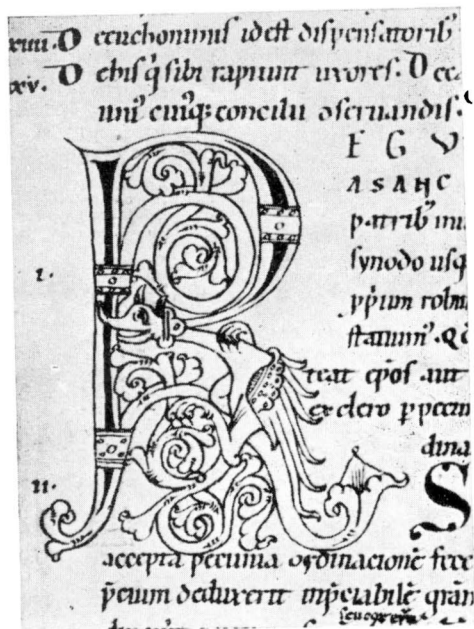 xiiii. D ecuhominis idest dispensatorib'
xxv. D ehis q̇ sibi rapiunt uxores. D ec
uni' cuiq; concilii oseruandis.
R E G V
A S A H C
i. patrib' in
synodo usq
statuim'. Q
reat ep̄os aut
ex clero p pecun
dina
ii. S
accepta pecunia ordinacionē fece
p̄cium deduxerit inp̄ciabilē gram